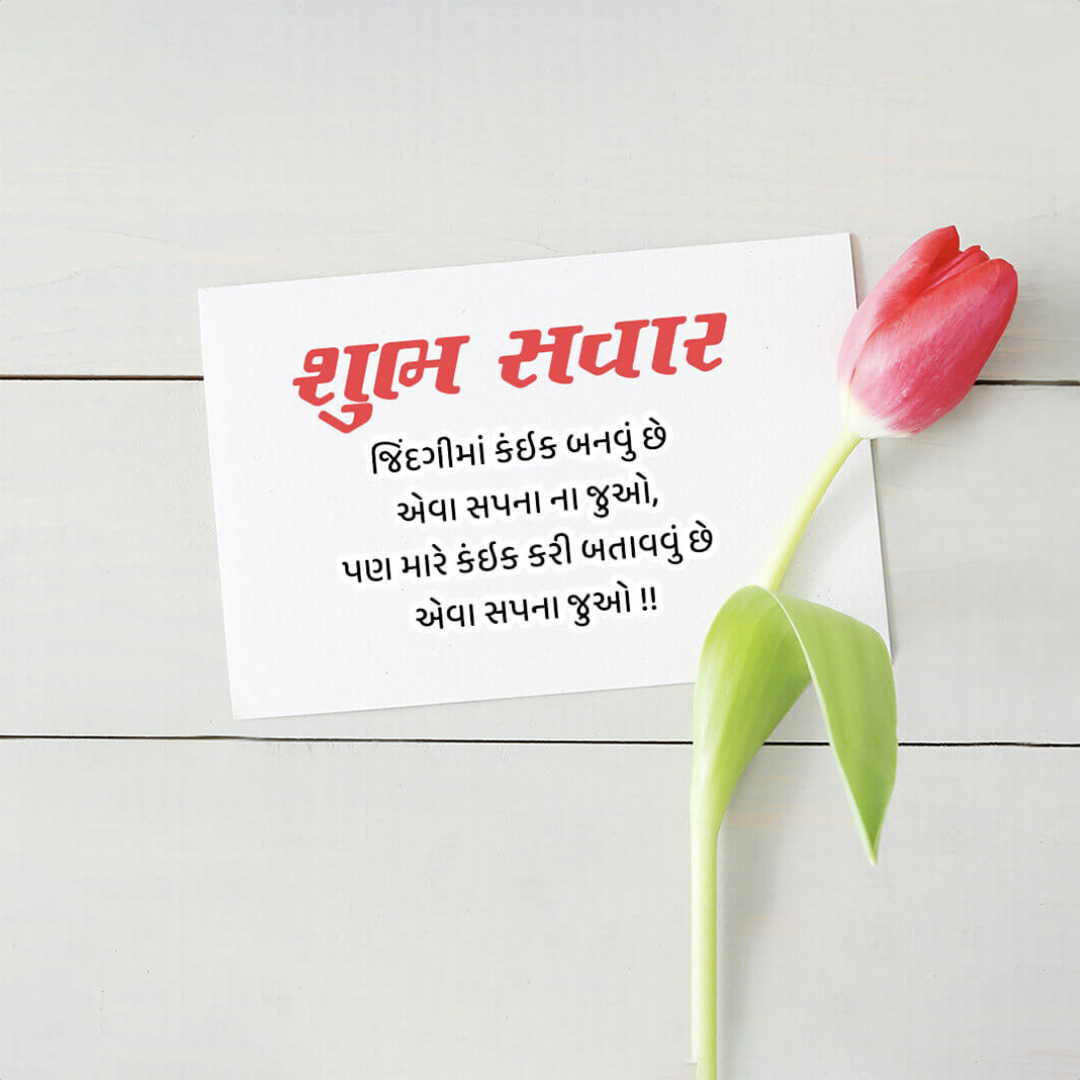 શુભ સવાર
જિંદગીમાં કંઈક બનવું છે
એવા સપના ના જુઓ,
પણ મારે કંઈક કરી બતાવવું છે
એવા સપના જુઓ !!